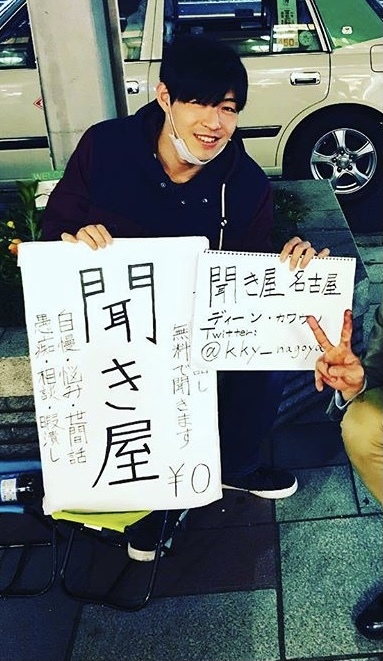 話し
無料で聞きます
聞き屋
自慢・悩み・世間話
愚痴・相談・暇潰し
¥0
聞き屋 名古屋
ディーン・カワウソ
Twitter:
@kky_nagoya